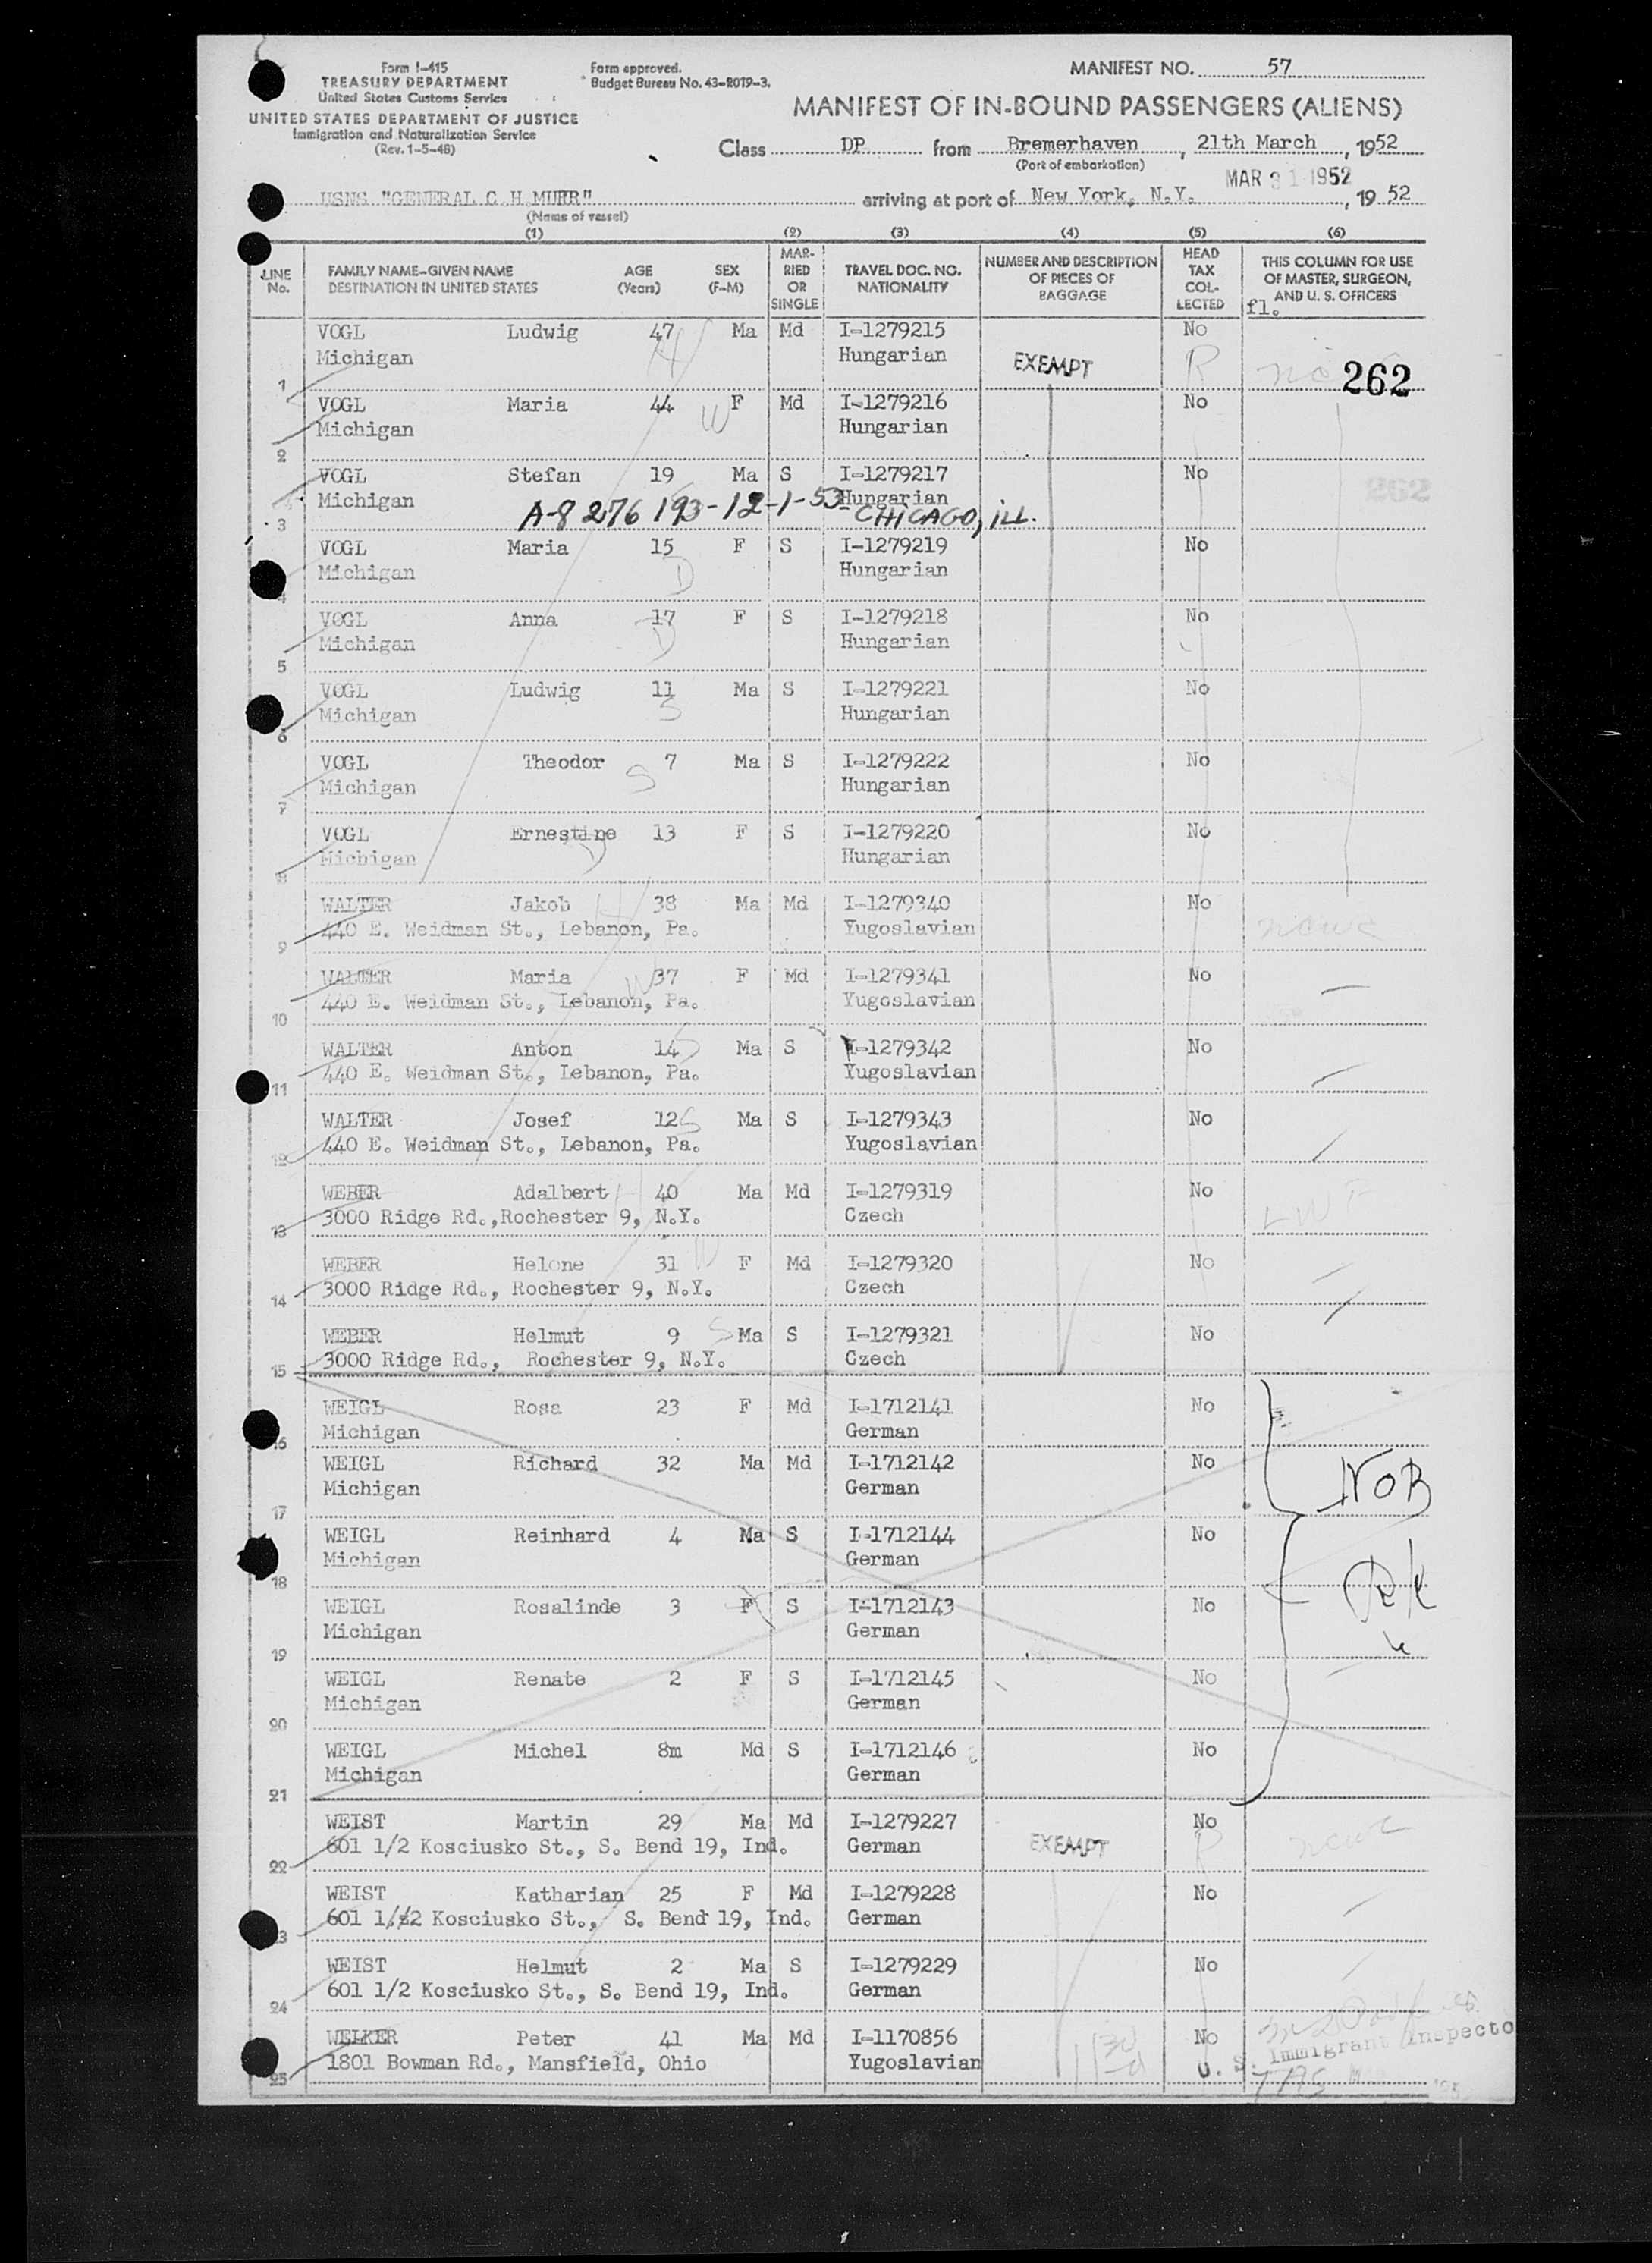 Form I-415
TREASURY DEPARTMENT
United States Customs Service
UNITED STATES DEPARTMENT OF JUSTICE
Immigration and Naturalization Service
(Rev. 1-5-48)
Form approved.
Budget Bureau No. 43-R019-3.
MANIFEST NO. 57
MANIFEST OF IN-BOUND PASSENGERS (ALIENS)
Class DP from Bremerhaven, 21th March, 1952
(Port of embarkation)
MAR 31 1952
USNS "GENERAL C.H.MUIR" arriving at port of New York, N.Y., 1952
(Name of vessel)
(1) (2) (3) (4) (5) (6)
LINE No. FAMILY NAME-GIVEN NAME DESTINATION IN UNITED STATES AGE (Years) SEX (F-M) MARRIED OR SINGLE TRAVEL DOC. NO. NATIONALITY NUMBER AND DESCRIPTION OF PIECES OF BAGGAGE HEAD TAX COLLECTED THIS COLUMN FOR USE OF MASTER, SURGEON, AND U. S. OFFICERS
fl.
VOGL Ludwig 47 Ma Md I-1279215 No
Michigan Hungarian EXEMPT R 262
1
VOGL Maria 44 W F Md I-1279216 No
Michigan Hungarian
2
VOGL Stefan 19 Ma S I-1279217 No
Michigan Hungarian 262
A-8 276 193-12-1-53 CHICAGO, ILL.
3
VOGL Maria 15 F S I-1279219 No
Michigan D Hungarian
4
VOGL Anna 17 F S I-1279218 No
Michigan D Hungarian
5
VOGL Ludwig 11 Ma S I-1279221 No
Michigan S Hungarian
6
VOGL Theodor 7 Ma S I-1279222 No
Michigan S Hungarian
7
VOGL Ernestine 13 F S I-1279220 No
Michigan D Hungarian
8
WALTER Jakob H 38 Ma Md I-1279340 No
440 E. Weidman St., Lebanon, Pa. Yugoslavian ncwc
9
WALTER Maria W 37 F Md I-1279341 No
440 E. Weidman St., Lebanon, Pa. Yugoslavian
10
WALTER Anton 14 S Ma S I-1279342 No
440 E. Weidman St., Lebanon, Pa. Yugoslavian
11
WALTER Josef 12 S Ma S I-1279343 No
440 E. Weidman St., Lebanon, Pa. Yugoslavian
12
WEBER Adalbert H 40 Ma Md I-1279319 No
3000 Ridge Rd.,Rochester 9, N.Y. Czech LWF
13
WEBER Helene 31 W F Md I-1279320 No
3000 Ridge Rd., Rochester 9, N.Y. Czech
14
WEBER Helmut 9 S Ma S I-1279321 No
3000 Ridge Rd., Rochester 9, N.Y. Czech
15
WEIGL Rosa 23 F Md I-1712141 No
Michigan German
16
WEIGL Richard 32 Ma Md I-1712142 No
Michigan German NOB
17
WEIGL Reinhard 4 Ma S I-1712144 No
Michigan German
18
WEIGL Rosalinde 3 F S I-1712143 No
Michigan German
19
WEIGL Renate 2 F S I-1712145 No
Michigan German
20
WEIGL Michel 8m Md S I-1712146 No
Michigan German
21
WEIST Martin 29 Ma Md I-1279227 No
601 1/2 Kosciusko St., S. Bend 19, Ind. German EXEMPT R ncwc
22
WEIST Katharian 25 F Md I-1279228 No
601 1/2 Kosciusko St., S. Bend 19, Ind. German
23
WEIST Helmut 2 Ma S I-1279229 No
601 1/2 Kosciusko St., S. Bend 19, Ind. German
24
WELKER Peter 41 Ma Md I-1170856 No
1801 Bowman Rd., Mansfield, Ohio Yugoslavian
U. S. Immigrant Inspecto
25